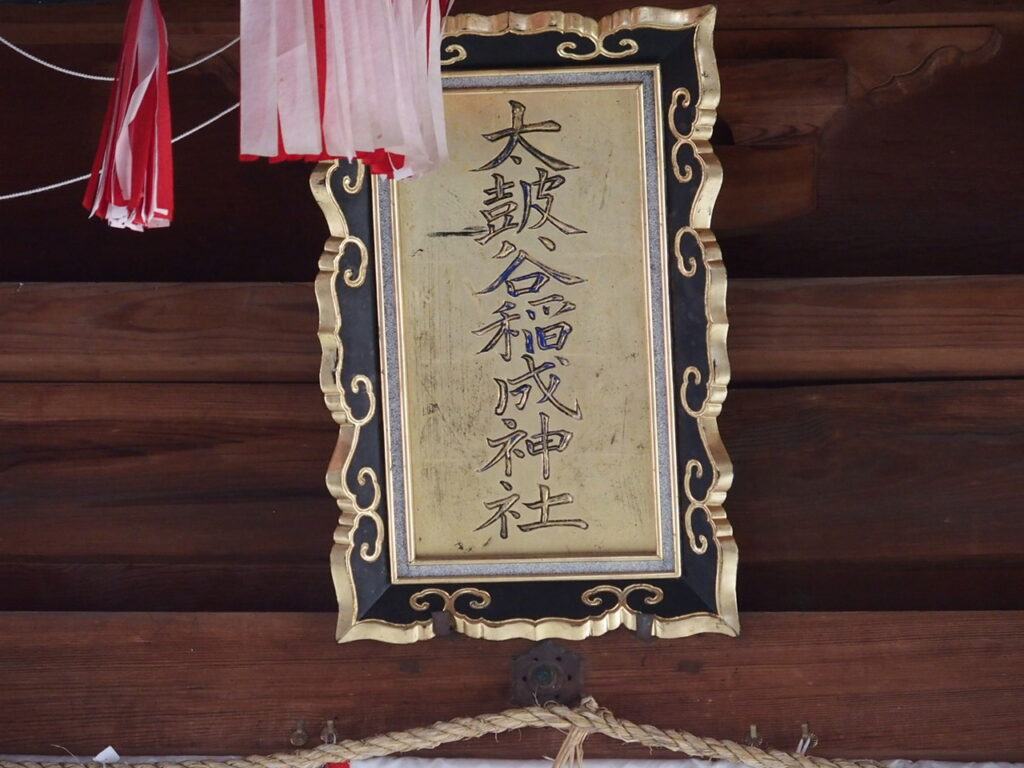 太皷谷稲成神社